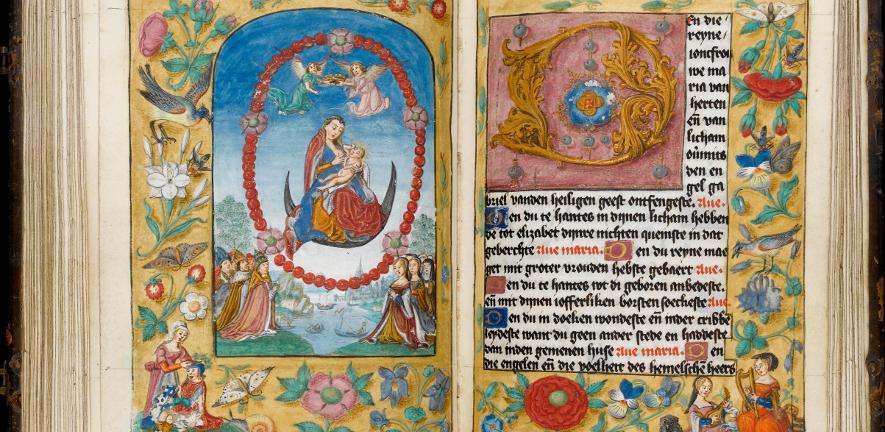 en die
reyne
ioncfrou
we ma
ria van
herten
eñ van
licham
den en
gel ga
briel vanden heiligen geest ontfengeste. Aue.
en du te hantes in dijnen licham hebben
de tot elizabet dijnre nichten quemste in dat
geberchte Aue maria. en du reyne mae
get mit groter vrouden hebste gebaert Aue.
en du te hantes tot di geboren anbedeste.
eñ mit dijnen iofferliken borsten soechste Aue
en du in doeken wondeste eñ in der cribbe
leydeste want du geen ander stede en haddeste
dan in den gemenen huse Aue maria. en
die engelen eñ die voelheit des hemelsche heers